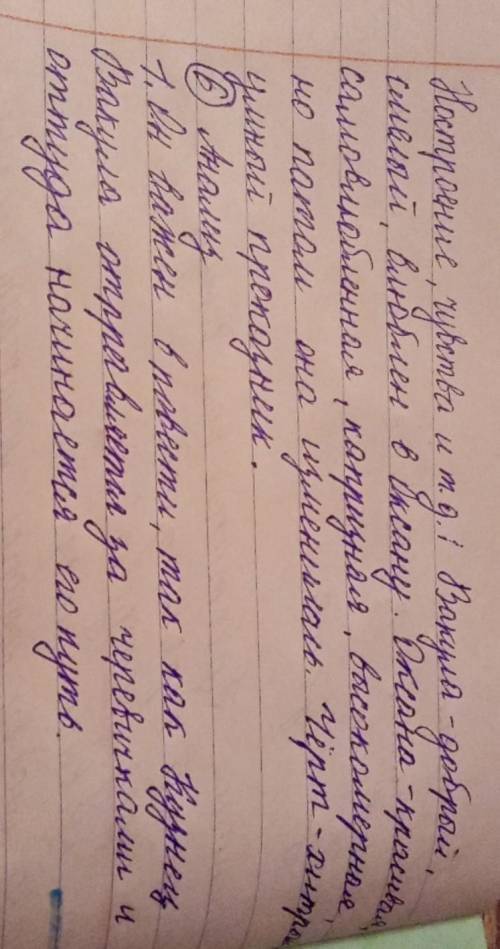 Настроение, чувства и т.д.: Вакула - добрый,
смелый, влюблен в Оксану. Оксана - красивая,
самовлюбленная, капризная, высокомерная,
но потом она изменилась. Чёрт - хитрый
умный проказник.
6 Анализ
1. Он важен в повести, так как Кузнец
Вакула отправляется за черевичками и
оттуда начинается его путь.